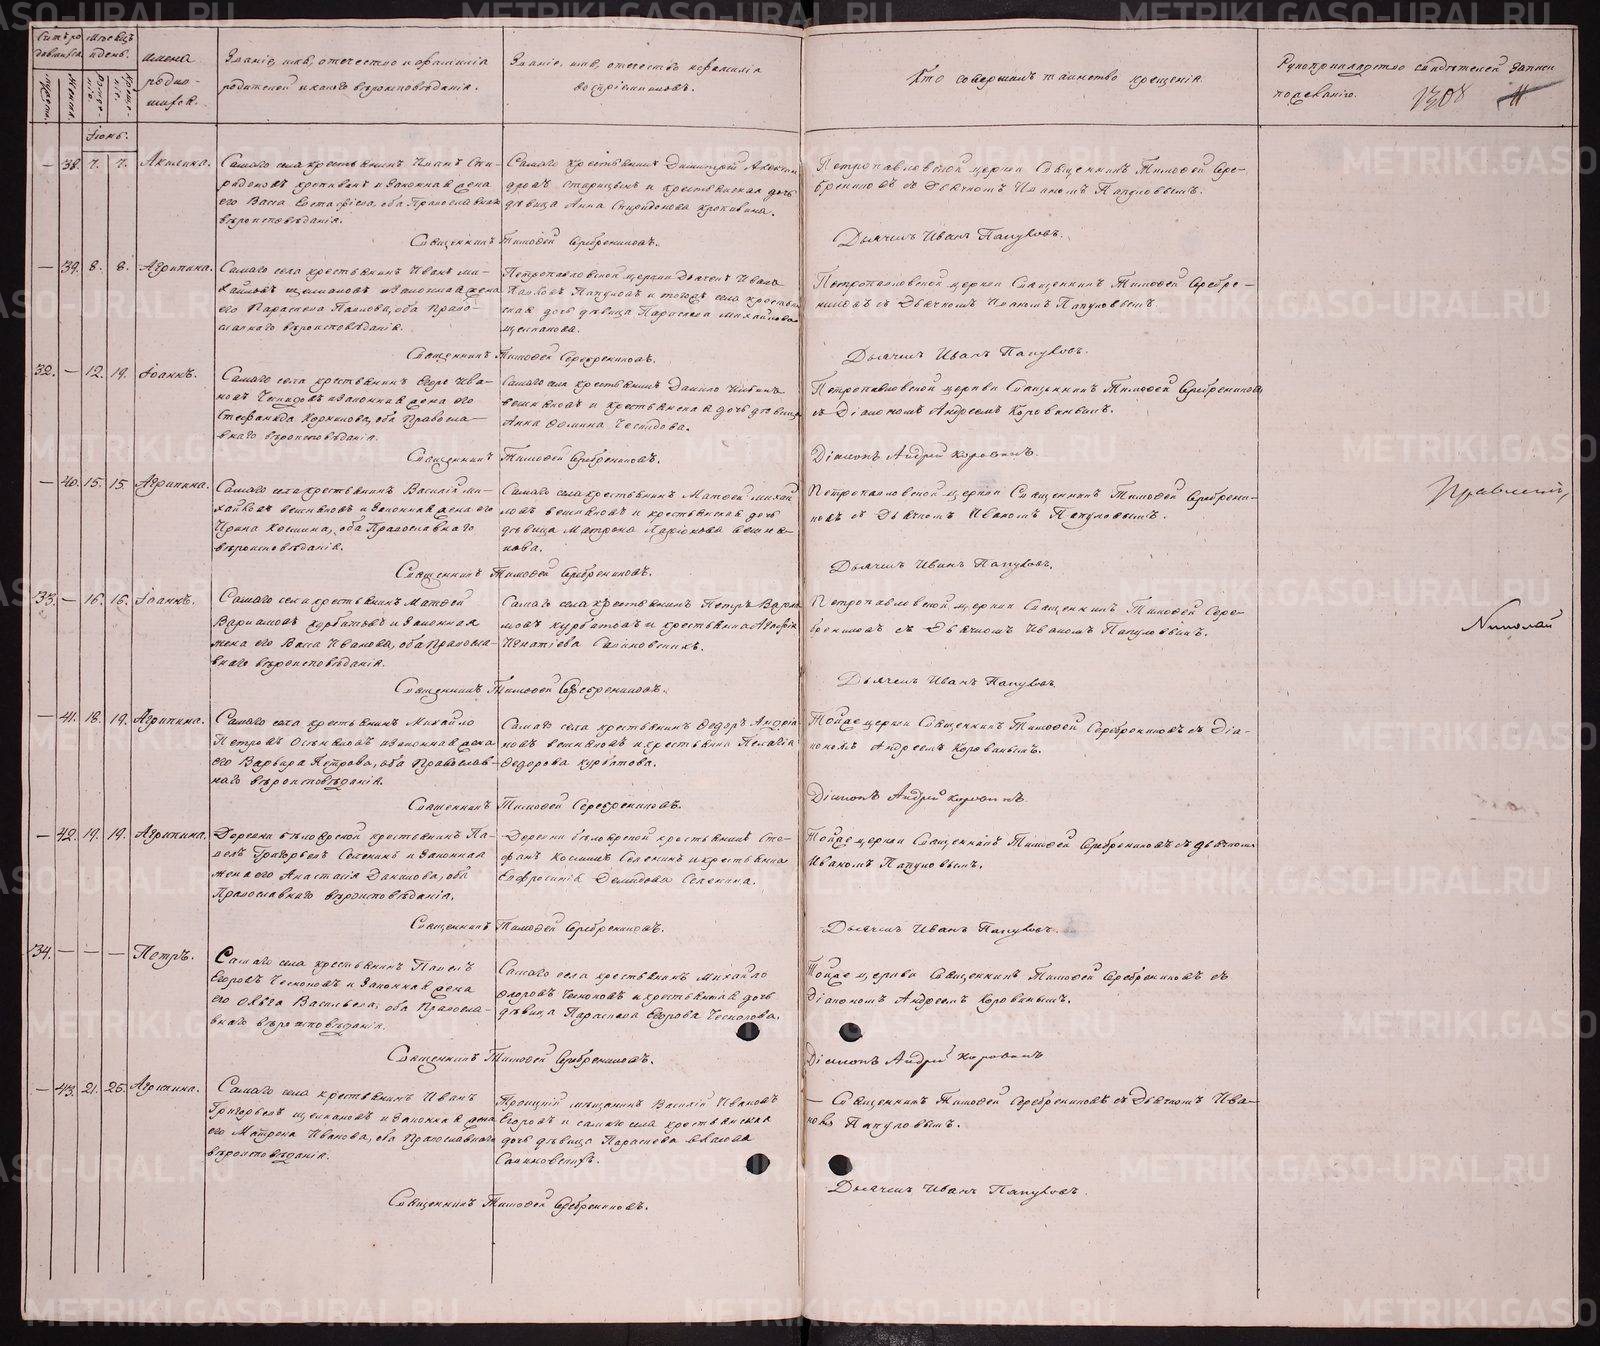 METRIKI.GASO-URAL.RU
Счетъ ро
дившихся
Мѣсяцъ
и день.
Имена
родив-
шихся.
Званіе, имя, отечество и фамилія
родителей и какого вѣроисповѣданія.
Званіе, имя, отечество и фамилія
воспріемниковъ.
Кто совершалъ таинство крещенія.
Рукоприкладство свидѣтелей записи
по желанію.
1308
11
Іюнь.
— 38. 7. 7. Акилина.
Самаго села крестьянинъ Иванъ Спи-
ридоновъ и законная жена
его Васса Евстафіева, оба Православнаго
вѣроисповѣданія.
Самаго крестьянинъ Димитрій
и крестьянская дочь
дѣвица Анна Спиридонова
Петропавловской церкви Священникъ Тимофей Сере-
бренниковъ съ Дьячкомъ Иваномъ Папуловымъ.
Священникъ Тимофей Серебренниковъ.
Дьячекъ Иванъ Папуловъ.
— 39. 8. 8. Агрипина.
Самаго села крестьянинъ Иванъ Ми-
хайловъ и законная жена
его Параскева Павлова, оба Право-
славнаго вѣроисповѣданія.
Петропавловской церкви Дьячекъ Иванъ
Папуловъ и тогожъ села крестьян-
ская дочь дѣвица Параскева Михайлова
Петропавловской церкви Священникъ Тимофей Серебре-
никовъ съ Дьячкомъ Иваномъ Папуловымъ.
Священникъ Тимофей Серебренниковъ.
Дьячекъ Иванъ Папуловъ.
32. — 12. 19. Іоаннъ.
Самаго села крестьянинъ Егоръ Ива-
новъ и законная жена его
Стефанида Корнилова, оба Правосла-
внаго вѣроисповѣданія.
Самаго села крестьянинъ Данило
Вешняковъ и крестьянская дочь дѣвица
Анна Фомина
Петропавловской церкви Священникъ Тимофей Серебренниковъ
съ Діакономъ Андреемъ Коровинымъ.
Священникъ Тимофей Серебренниковъ.
Діаконъ Андрей Коровинъ.
— 40. 15. 15. Агрипина.
Самаго села крестьянинъ Василій Ми-
хайловъ Вешняковъ и законная жена его
Ирина Космина, оба Православнаго
вѣроисповѣданія.
Самаго села крестьянинъ Матфей Михай
ловъ Вешняковъ и крестьянская дочь
дѣвица Матрона Ларіонова Вешня-
кова.
Петропавловской церкви Священникъ Тимофей Серебрени-
ковъ съ Дьячкомъ Иваномъ Папуловымъ.
Священникъ Тимофей Серебренниковъ.
Дьячекъ Иванъ Папуловъ.
33. — 16. 16. Іоаннъ.
Самаго села крестьянинъ Матфей
Варламовъ Курбатовъ и законная
жена его Васса Иванова, оба Правосла-
внаго вѣроисповѣданія.
Самаго села крестьянинъ Петръ Варла
мовъ Курбатовъ и крестьянка Агафія
Игнатіева
Петропавловской церкви Священникъ Тимофей Сере-
бренниковъ съ Дьячкомъ Иваномъ Папуловымъ.
Николай
Священникъ Тимофей Серебренниковъ.
Дьячекъ Иванъ Папуловъ.
— 41. 18. 19. Агрипина.
Самаго села крестьянинъ Михайло
Петровъ и законная жена
его Варвара Петрова, оба Православ-
наго вѣроисповѣданія.
Самаго села крестьянинъ Федоръ Андріа-
новъ Вешняковъ и крестьянка Пелагія
Федорова Курбатова.
Тойже церкви Священникъ Тимофей Серебренниковъ съ Діа-
кономъ Андреемъ Коровинымъ.
Священникъ Тимофей Серебренниковъ.
Діаконъ Андрей Коровинъ
— 42. 19. 19. Агрипина.
Деревни крестьянинъ Па-
велъ Григорьевъ Селенинъ и законная
жена его Анастасія Данилова, оба
Православнаго вѣроисповѣданія.
Деревни крестьянинъ Сте-
фанъ Косминъ Селенинъ и крестьянка
Евфросинія Демидова Селенина.
Тойже церкви Священникъ Тимофей Серебренниковъ съ Дьячкомъ
Иваномъ Папуловымъ.
Священникъ Тимофей Серебренниковъ.
Дьячекъ Иванъ Папуловъ.
34. — — — Петръ.
Самаго села крестьянинъ Павелъ
Егоровъ и законная жена
его Ольга Васильева, оба Правосла-
внаго вѣроисповѣданія.
Самаго села крестьянинъ Михайло
и крестьянская дочь
дѣвица Параскева Егорова
Тойже церкви Священникъ Тимофей Серебренниковъ съ
Діакономъ Андреемъ Коровинымъ.
Священникъ Тимофей Серебренниковъ.
Діаконъ Андрей Коровинъ
— 43. 21. 25. Агрипина.
Самаго села крестьянинъ Иванъ
Григорьевъ и законная жена
его Матрона Иванова, оба Православнаго
вѣроисповѣданія.
Троицкій мѣщанинъ Василій Ивановъ
Егоровъ и самаго села крестьянская
дочь дѣвица Параскева
— Священникъ Тимофей Серебренниковъ съ Дьячкомъ Ива-
номъ Папуловымъ.
Священникъ Тимофей Серебренниковъ.
Дьячекъ Иванъ Папуловъ.